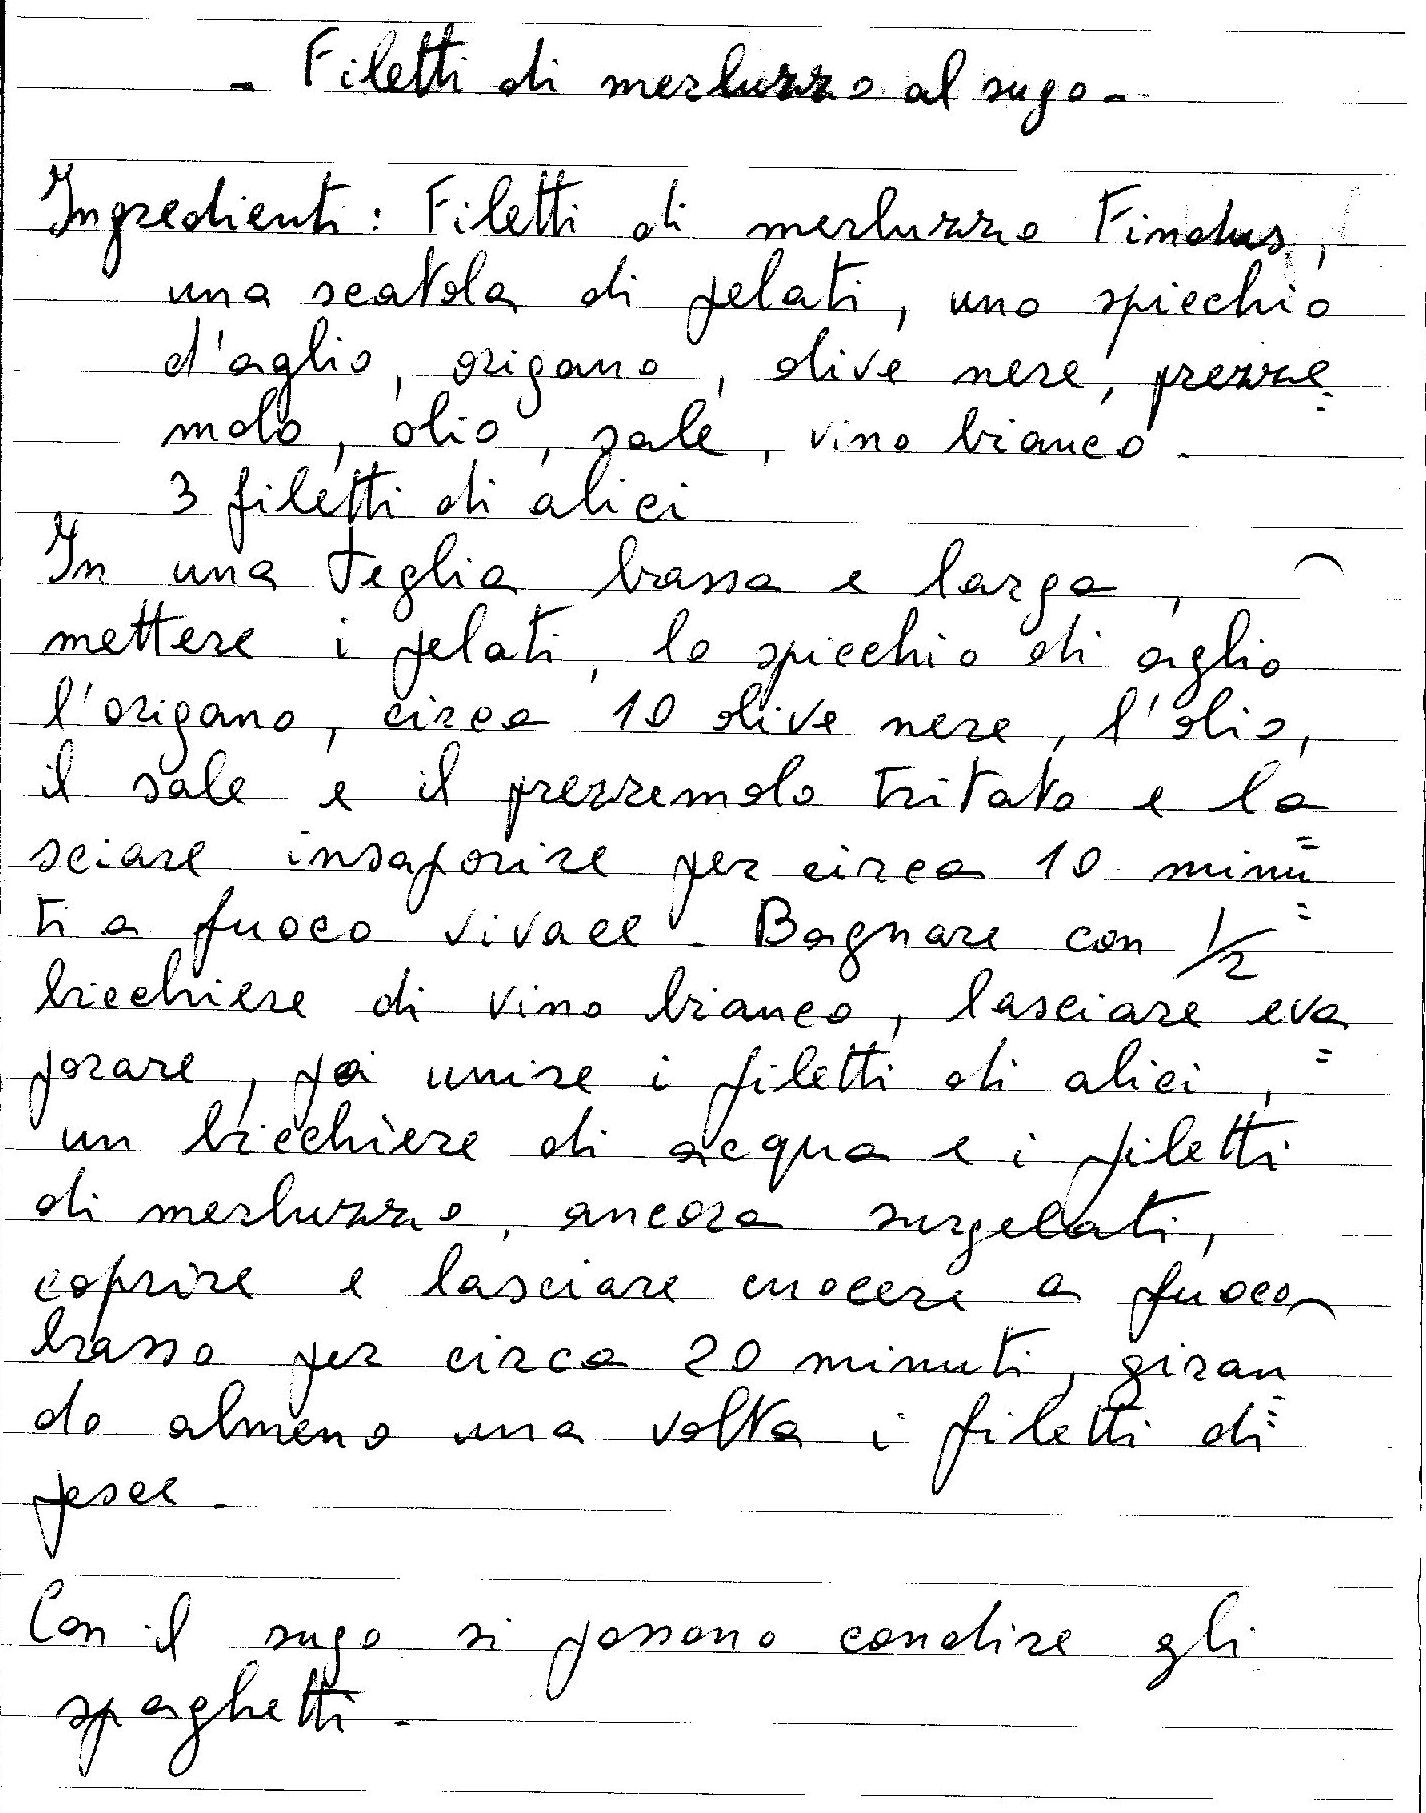 - Filetti di merluzzo al sugo -
Ingredienti: Filetti di merluzzo Findus,
una scatola di pelati, uno spicchio
d'aglio, origano, olive nere, prezze=
molo, olio, sale, vino bianco.
3 filetti di alici
In una teglia bassa e larga,
mettere i pelati, lo spicchio di aglio
l'origano, circa 10 olive nere, l'olio,
il sale e il prezzemolo tritato e la=
sciare insaporire per circa 10 minu=
ti a fuoco vivace. Bagnare con 1/2
bicchiere di vino bianco, lasciare eva=
porare, poi unire i filetti di alici,
un bicchiere di acqua e i filetti
di merluzzo, ancora surgelati,
coprire e lasciare cuocere a fuoco
basso per circa 20 minuti, giran=
do almeno una volta i filetti di
pesce.
Con il sugo si possono condire gli
spaghetti.